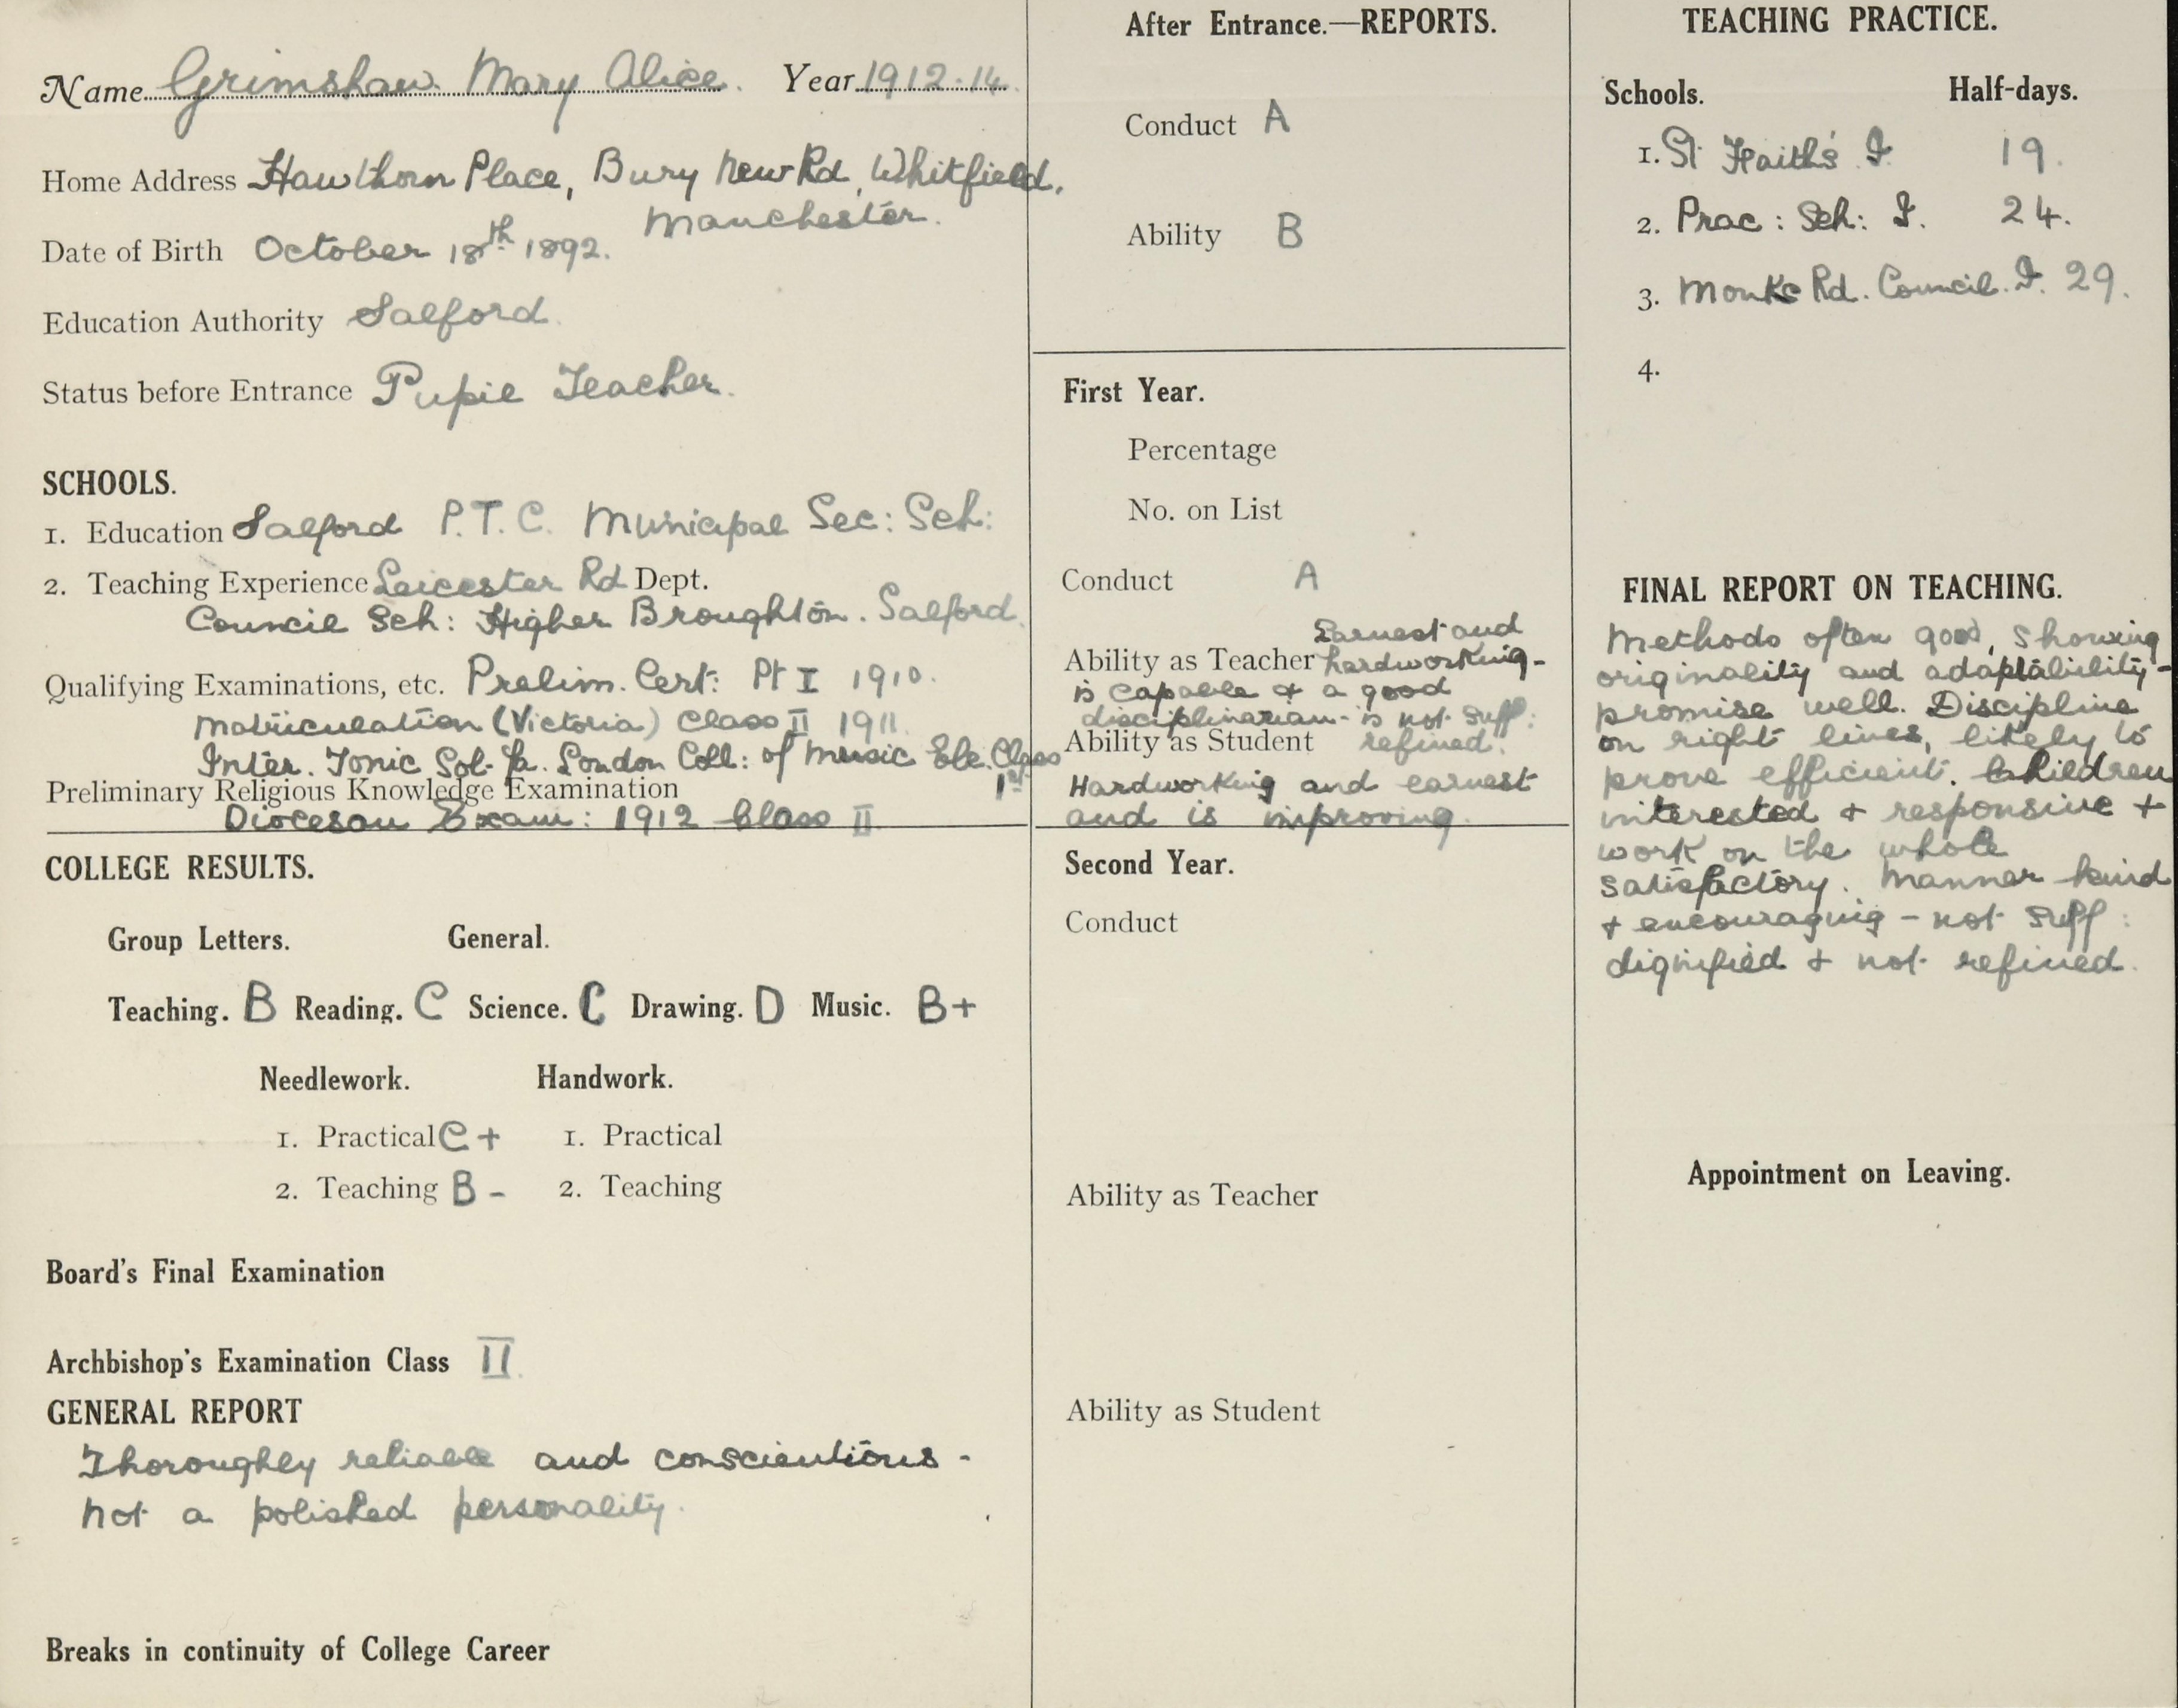 Name Grimshaw Mary Alice. Year 1912-14.
Home Address Hawthorn Place, Bury New Rd, Whitfield,
Manchester.
Date of Birth October 18th 1892.
Education Authority Salford.
Status before Entrance Pupil Teacher.
SCHOOLS.
1. Education Salford P.T.C. Municipal Sec: Sch:
2. Teaching Experience Leicester Rd Dept.
Council Sch: Higher Broughton. Salford.
Qualifying Examinations, etc. Prelim. Cert: Pt I 1910.
Matriculation (Victoria) Class II 1911.
Inter. Tonic Sol-fa. London Coll: of Music Ele. Class
1st
Preliminary Religious Knowledge Examination
Diocesan Exam: 1912 Class II
COLLEGE RESULTS.
Group Letters. General.
Teaching. B Reading. C Science. C Drawing. D Music. B+
Needlework. Handwork.
1. Practical C+ 1. Practical
2. Teaching B- 2. Teaching
Board's Final Examination
Archbishop's Examination Class II.
GENERAL REPORT
Thoroughly reliable and conscientious -
not a polished personality.
Breaks in continuity of College Career
After Entrance.—REPORTS.
Conduct A
Ability B
First Year.
Percentage
No. on List
Conduct A
Earnest and
Ability as Teacher hardworking -
is capable & a good
disciplinarian - is not suff:
Ability as Student refined.
Hardworking and earnest
and is improving.
Second Year.
Conduct
Ability as Teacher
Ability as Student
TEACHING PRACTICE.
Schools. Half-days.
1. St Faith's I. 19.
2. Prac: Sch: I. 24.
3. Monks Rd. Council. I. 29.
4.
FINAL REPORT ON TEACHING.
Methods often good, showing
originality and adaptability -
promise well. Discipline
on right lines, likely to
prove efficient. Children
interested & responsive &
work on the whole
satisfactory. Manner kind
& encouraging - not suff:
dignified & not refined.
Appointment on Leaving.